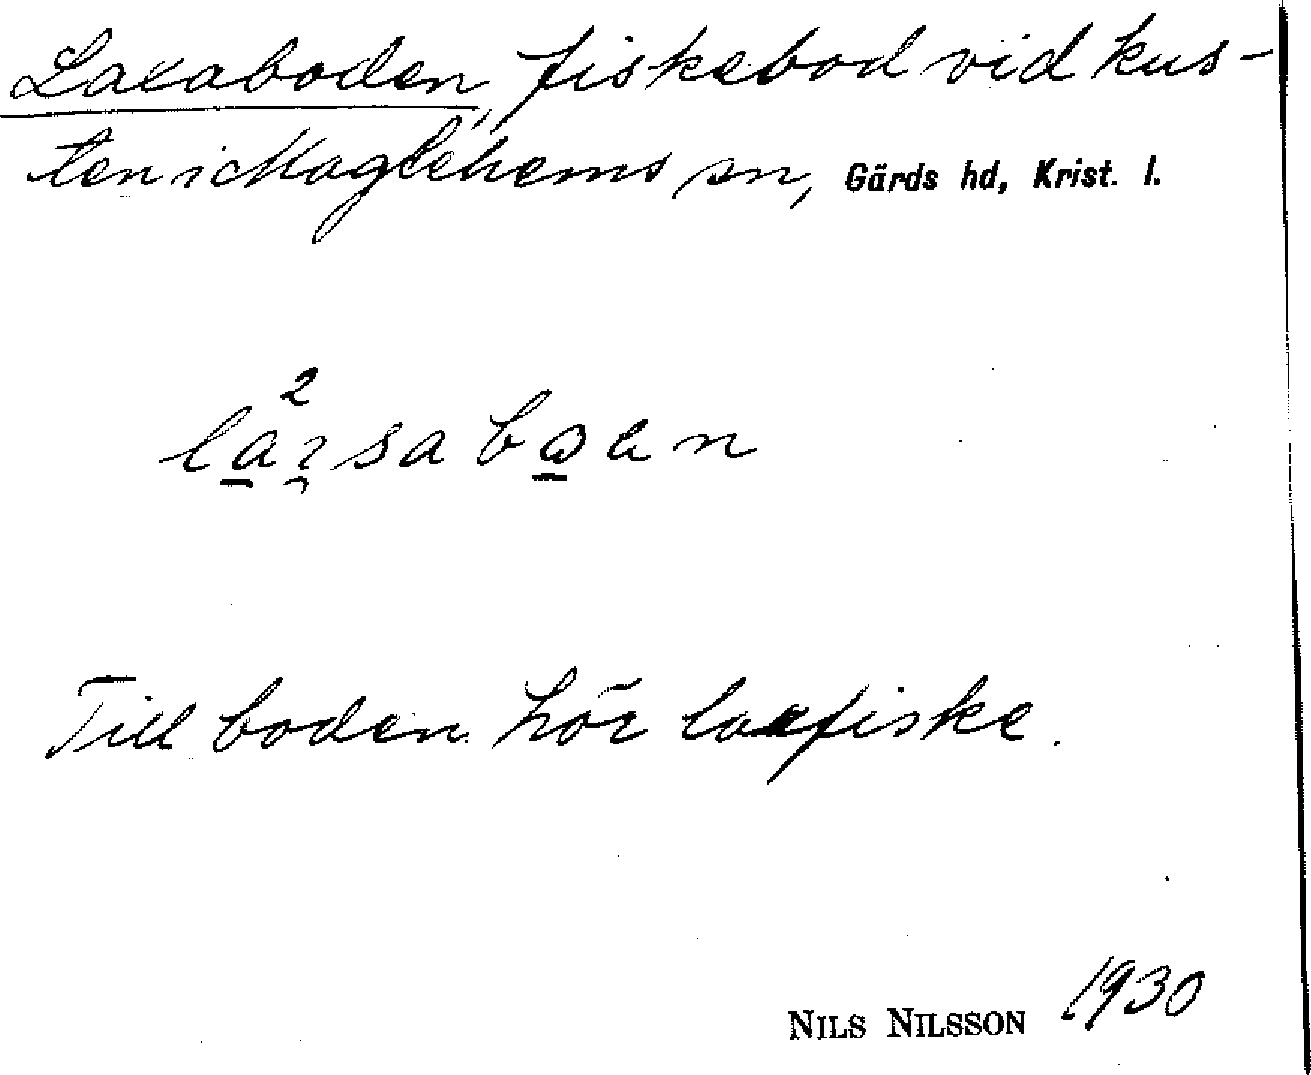 Laxaboden, fiskebod vid kus-
ten i Maglehems sn, Gärds hd, Krist. l.
Till boden hör laxfiske.
NILS NILSSON 1930